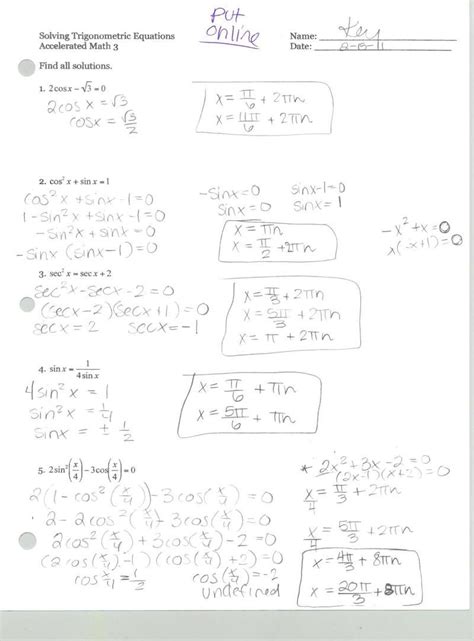 Put
online
Solving Trigonometric Equations
Accelerated Math 3
Name: Key
Date: 2-15-11
Find all solutions.
1. 2cosx − √3 = 0
2cos x = √3
cosx = √3/2
x = π/6 + 2πn
x = 11π/6 + 2πn
2. cos² x + sin x = 1
cos²x + sinx - 1 = 0
1 - sin²x + sinx - 1 = 0
- sin²x + sinx = 0
- sinx (sinx - 1) = 0
- sinx = 0
sinx = 0
sinx - 1 = 0
sinx = 1
x = πn
x = π/2 + 2πn
- x² + x = 0
x(-x+1) = 0
3. sec² x = sec x + 2
sec²x - secx - 2 = 0
(secx - 2)(secx + 1) = 0
secx = 2 secx = -1
x = π/3 + 2πn
x = 5π/3 + 2πn
x = π + 2πn
4. sin x = 1/(4 sin x)
4sin²x = 1
sin²x = 1/4
sinx = ± 1/2
x = π/6 + πn
x = 5π/6 + πn
5. 2sin²(x/4) − 3cos(x/4) = 0
2(1 - cos²(x/4)) - 3cos(x/4) = 0
2 - 2cos²(x/4) - 3cos(x/4) = 0
2cos²(x/4) + 3cos(x/4) - 2 = 0
(2cos(x/4) - 1)(cos(x/4) + 2) = 0
cos x/4 = 1/2
cos(x/4) = -2
undefined
* 2x² + 3x - 2 = 0
(2x-1)(x+2) = 0
x/4 = π/3 + 2πn
x/4 = 5π/3 + 2πn
x = 4π/3 + 8πn
x = 20π/3 + 8πn